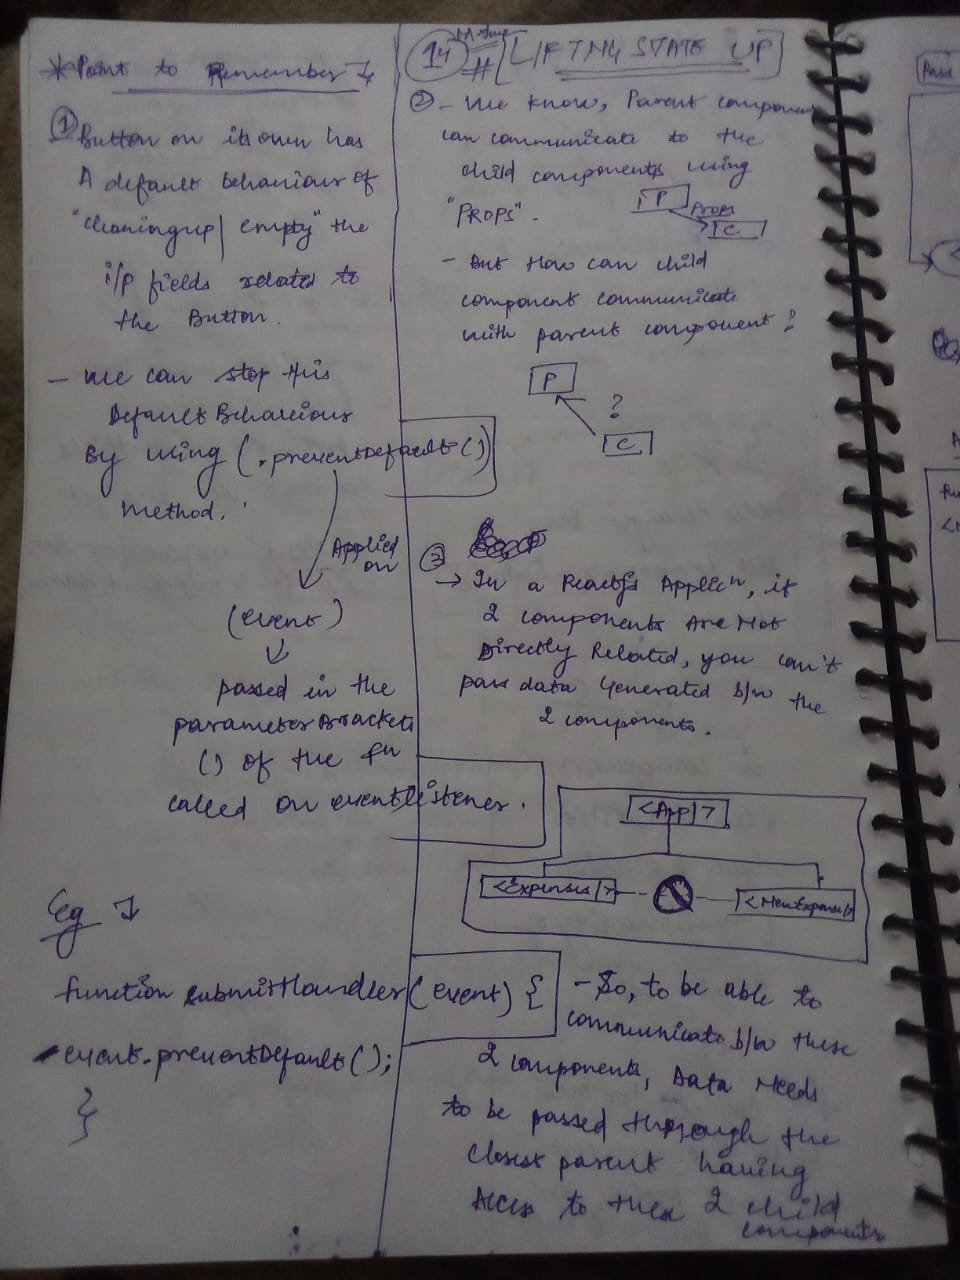 * Point to Remember
① Button on its own has
A default behaviour of
"cleaning up / empty" the
i/p fields related to
the Button.
- We can stop this
Default Behaviour
By using (.preventDefault()
method.
Applied
on
(event)
passed in the
parameter Brackets
() of the fn
called on eventlistener.
Eg
function submitHandler(event) {
event.preventDefault();
}
14
# [LIFTING STATE UP]
② - We know, Parent component
can communicate to the
child components using
"PROPS".
P
Props
C
- But How can child
component communicate
with parent component?
P
?
C
③
→ In a Reactjs Applicn, if
2 components Are Not
Directly Related, you can't
pass data Generated b/w the
2 components.
<App/>
<Expenses/>
<NewExpense/>
- So, to be able to
communicate b/w these
2 components, Data Needs
to be passed through the
closest parent having
Access to these 2 child
components
Pass